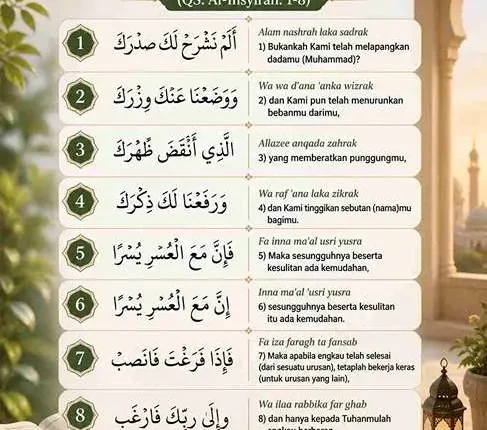 (QS. Al-Insyirah: 1-8)
1
أَلَمْ نَشْرَحْ لَكَ صَدْرَكَ
Alam nashrah laka sadrak
1) Bukankah Kami telah melapangkan
dadamu (Muhammad)?
2
وَوَضَعْنَا عَنْكَ وِزْرَكَ
Wa wa d'ana 'anka wizrak
2) dan Kami pun telah menurunkan
bebanmu darimu,
3
الَّذِي أَنْقَضَ ظَهْرَكَ
Allazee anqada zahrak
3) yang memberatkan punggungmu,
4
وَرَفَعْنَا لَكَ ذِكْرَكَ
Wa raf 'ana laka zikrak
4) dan Kami tinggikan sebutan (nama)mu
bagimu.
5
فَإِنَّ مَعَ الْعُسْرِ يُسْرًا
Fa inna ma'al usri yusra
5) Maka sesungguhnya beserta
kesulitan ada kemudahan,
6
إِنَّ مَعَ الْعُسْرِ يُسْرًا
Inna ma'al 'usri yusra
6) sesungguhnya beserta kesulitan
itu ada kemudahan.
7
فَإِذَا فَرَغْتَ فَانْصَبْ
Fa iza faragh ta fansab
7) Maka apabila engkau telah selesai
(dari sesuatu urusan), tetaplah bekerja keras
(untuk urusan yang lain),
8
وَإِلَى رَبِّكَ فَارْغَب
Wa ilaa rabbika far ghab
8) dan hanya kepada Tuhanmulah